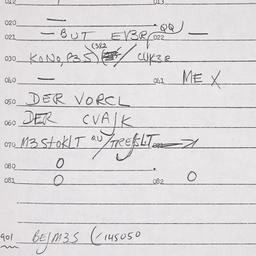 012 013
020
021 BUT EV3R QQ
022
030 KONO, P3S (382 / CUK3R
040
041 ME X
050 DER VORCL
060 DER CVAJK
070 M3StOKLT QU/TREJSLT
080 0
081 0 082 0
901 BEJM3S (145050